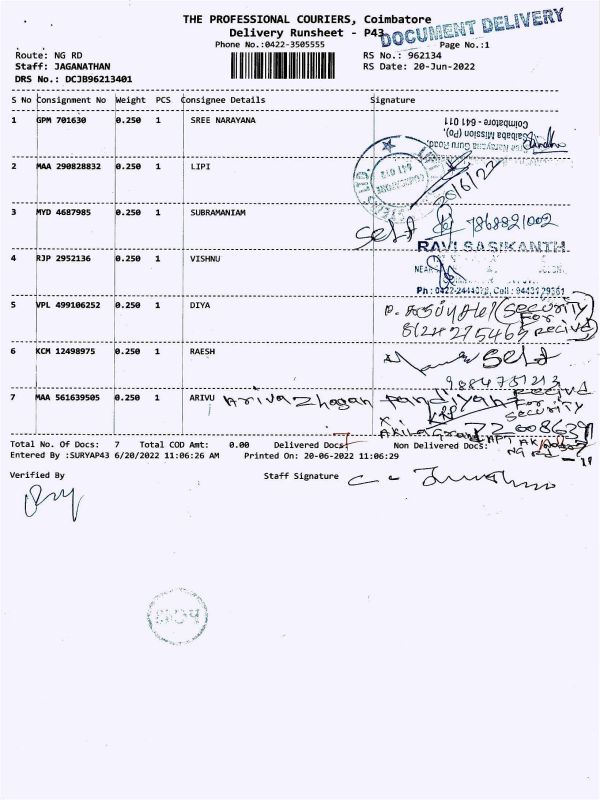 THE PROFESSIONAL COURIERS, Coimbatore
DOCUMENT DELIVERY
Delivery Runsheet - P43
Phone No.:0422-3505555
Page No.:1
Route: NG RD
RS No.: 962134
Staff: JAGANATHAN
RS Date: 20-Jun-2022
DRS No.: DCJB96213401
S No Consignment No Weight PCS Consignee Details Signature
1 GPM 701630 0.250 1 SREE NARAYANA
Coimbatore - 641 011
Saibaba Mission (Po),
Narayana Guru Road,
2 MAA 290828832 0.250 1 LIPI
20/6/22
3 MYD 4687985 0.250 1 SUBRAMANIAM
Self 7868821002
RAVI SASIKANTH
4 RJP 2952136 0.250 1 VISHNU
NEAR
5 VPL 499106252 0.250 1 DIYA
(SECURITY
FOR
6 KCM 12498975 0.250 1 RAESH
Self
9884751213
7 MAA 561639505 0.250 1 ARIVU Arivazhagan pandiyan
For
SECURITY
Total No. Of Docs: 7 Total COD Amt: 0.00 Delivered Docs: 7 Non Delivered Docs:
NG Rd
Entered By :SURYAP43 6/20/2022 11:06:26 AM Printed On: 20-06-2022 11:06:29
Verified By Staff Signature